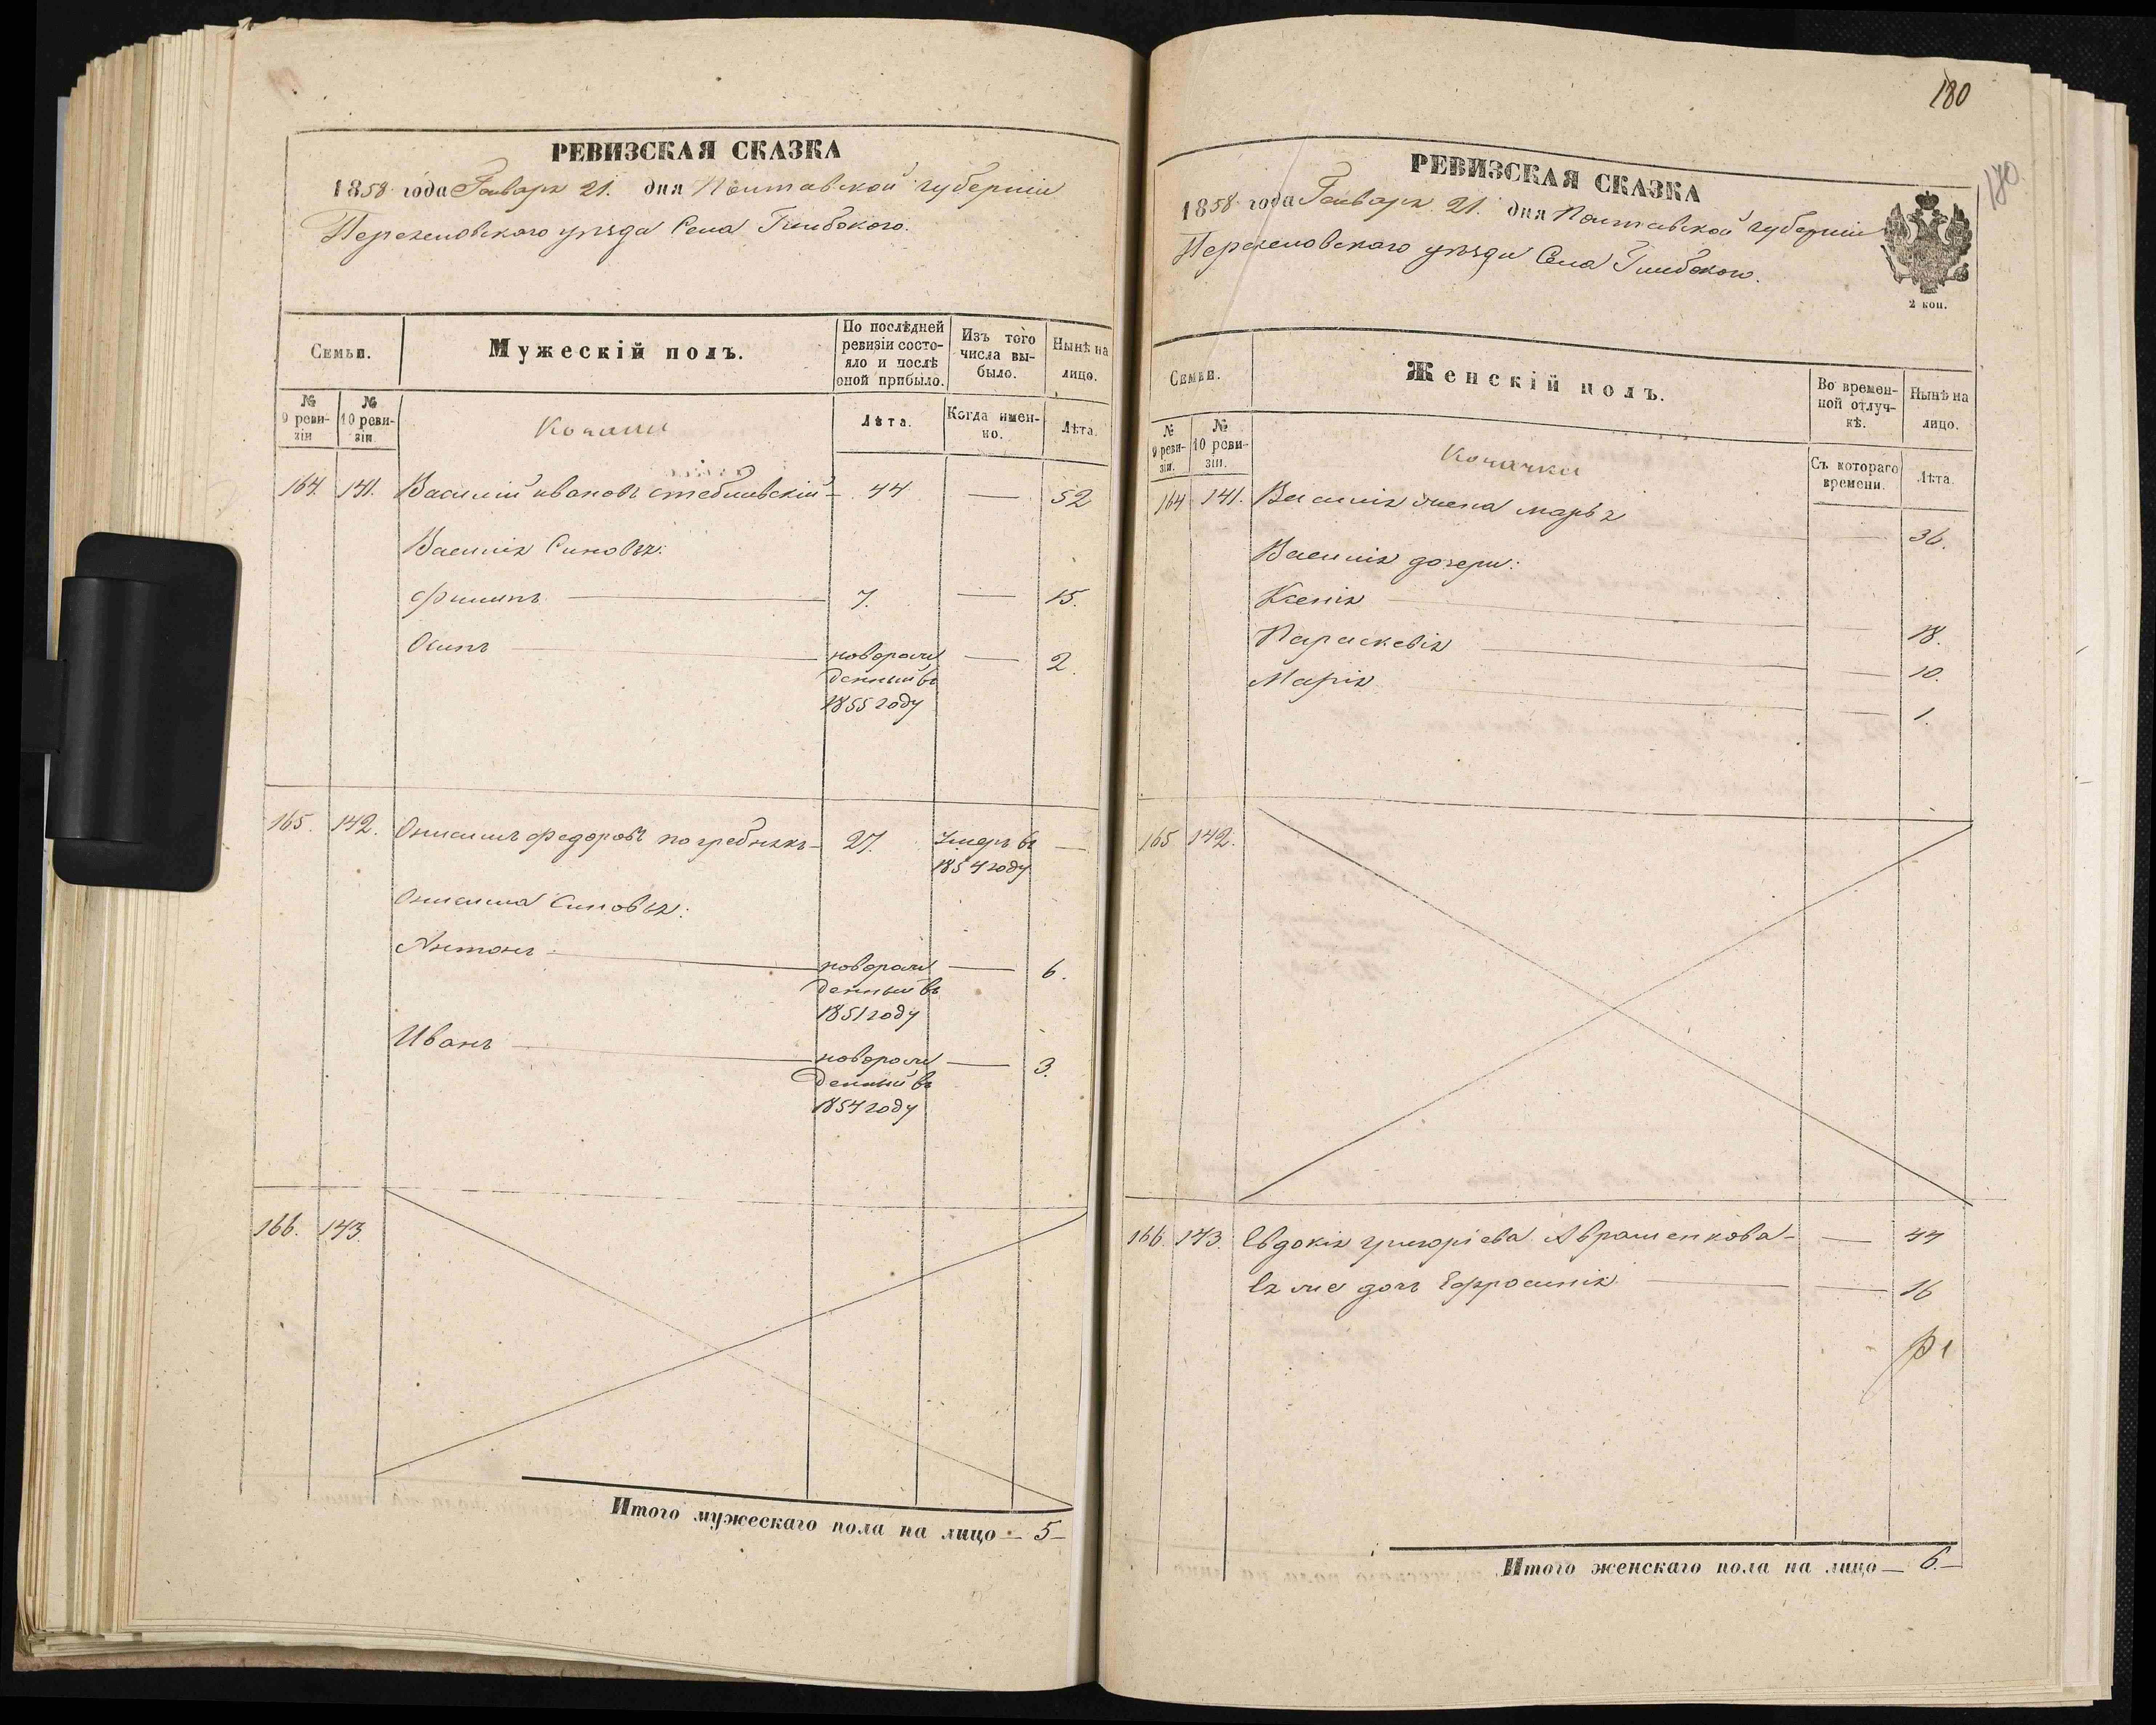 180
180
РЕВИЗСКАЯ СКАЗКА
1858 года Генваря 21. дня Полтавской губерніи
Переяславского уѣзда Села Глибокого.
Семьи.
Мужескій полъ.
По послѣдней ревизіи состояло и послѣ оной прибыло.
Изъ того числа выбыло.
Нынѣ на лицо.
№ 9 ревизіи
№ 10 ревизіи.
Козаки
Лѣта.
Когда именно.
Лѣта.
164. 141. Василій Ивановъ Стеблевскій — 44 — 52
Василія Синовья:
Филипъ — 7. — 15.
Осипъ — новорож — 2.
денный въ
1855 году
165. 142. Онисимъ Федоровъ Погребнякъ — 27. Умеръ въ —
1854 году
Онисима Синовья:
Антонъ — новорож — 6.
денный въ
1851 году
Иванъ — новорож — 3.
денный въ
1854 году
166. 143.
Итого мужескаго пола на лицо — 5 —
РЕВИЗСКАЯ СКАЗКА
1858 года Генваря 21. дня Полтавской губерніи
Переяславского уѣзда Села Глибокого.
2 коп.
Семьи.
Женскій полъ.
Во временной отлучкѣ.
Нынѣ на лицо.
№ 9 ревизіи.
№ 10 ревизіи.
Козачки
Съ котораго времени.
Лѣта.
164 141. Василія жена Марья — 36.
Василія дочери:
Ксенія — 18.
Параскевія — 10.
Марія — 1.
165 142.
166. 143. Евдокія Григоріева Авраменкова — — 44
Ея же дочь Ефросинія — — 16
Итого женскаго пола на лицо — 6. —